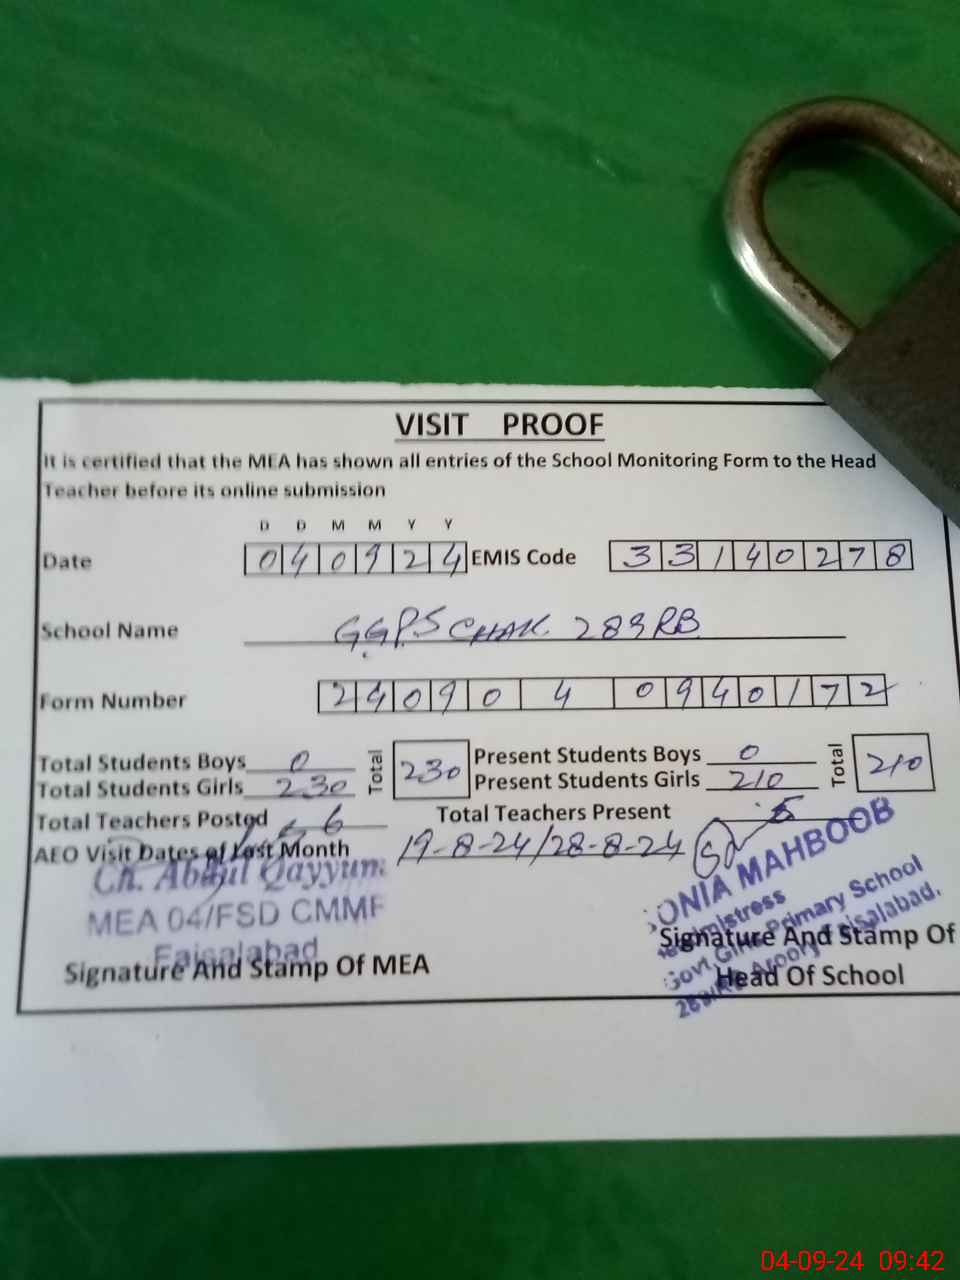 VISIT PROOF
It is certified that the MEA has shown all entries of the School Monitoring Form to the Head
Teacher before its online submission
D D M M Y Y
Date 040924 EMIS Code 33140278
School Name GGPS CHAK 289 RB
Form Number 2409040940172
Total Students Boys 0 Total 230 Present Students Boys 0 Total 210
Total Students Girls 230 Present Students Girls 210
Total Teachers Posted 6 Total Teachers Present 5
AEO Visit Dates of Last Month 19-8-24/28-8-24
Ch. Abdul Qayyum
MEA 04/FSD CMMF
Faisalabad
Signature And Stamp Of MEA
ONIA MAHBOOB
Govt. Girls Primary School
Faisalabad.
Signature And Stamp Of
Head Of School
04-09-24 09:42